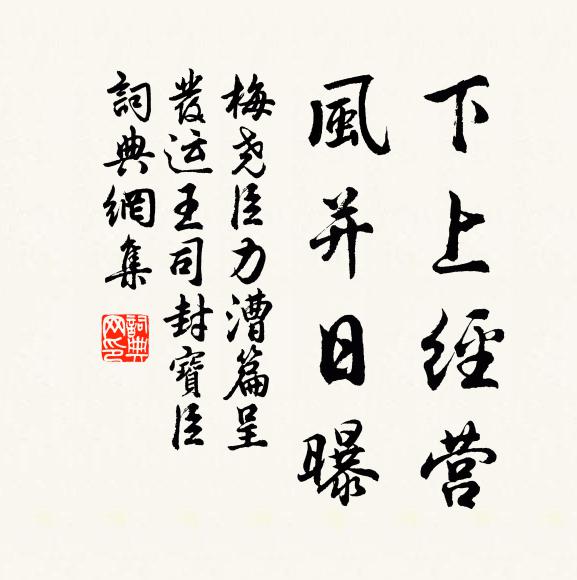 下上經营
風并日曝
梅尧臣力漕篇呈
發运王司封寶臣
詞典網集
詞典
网印